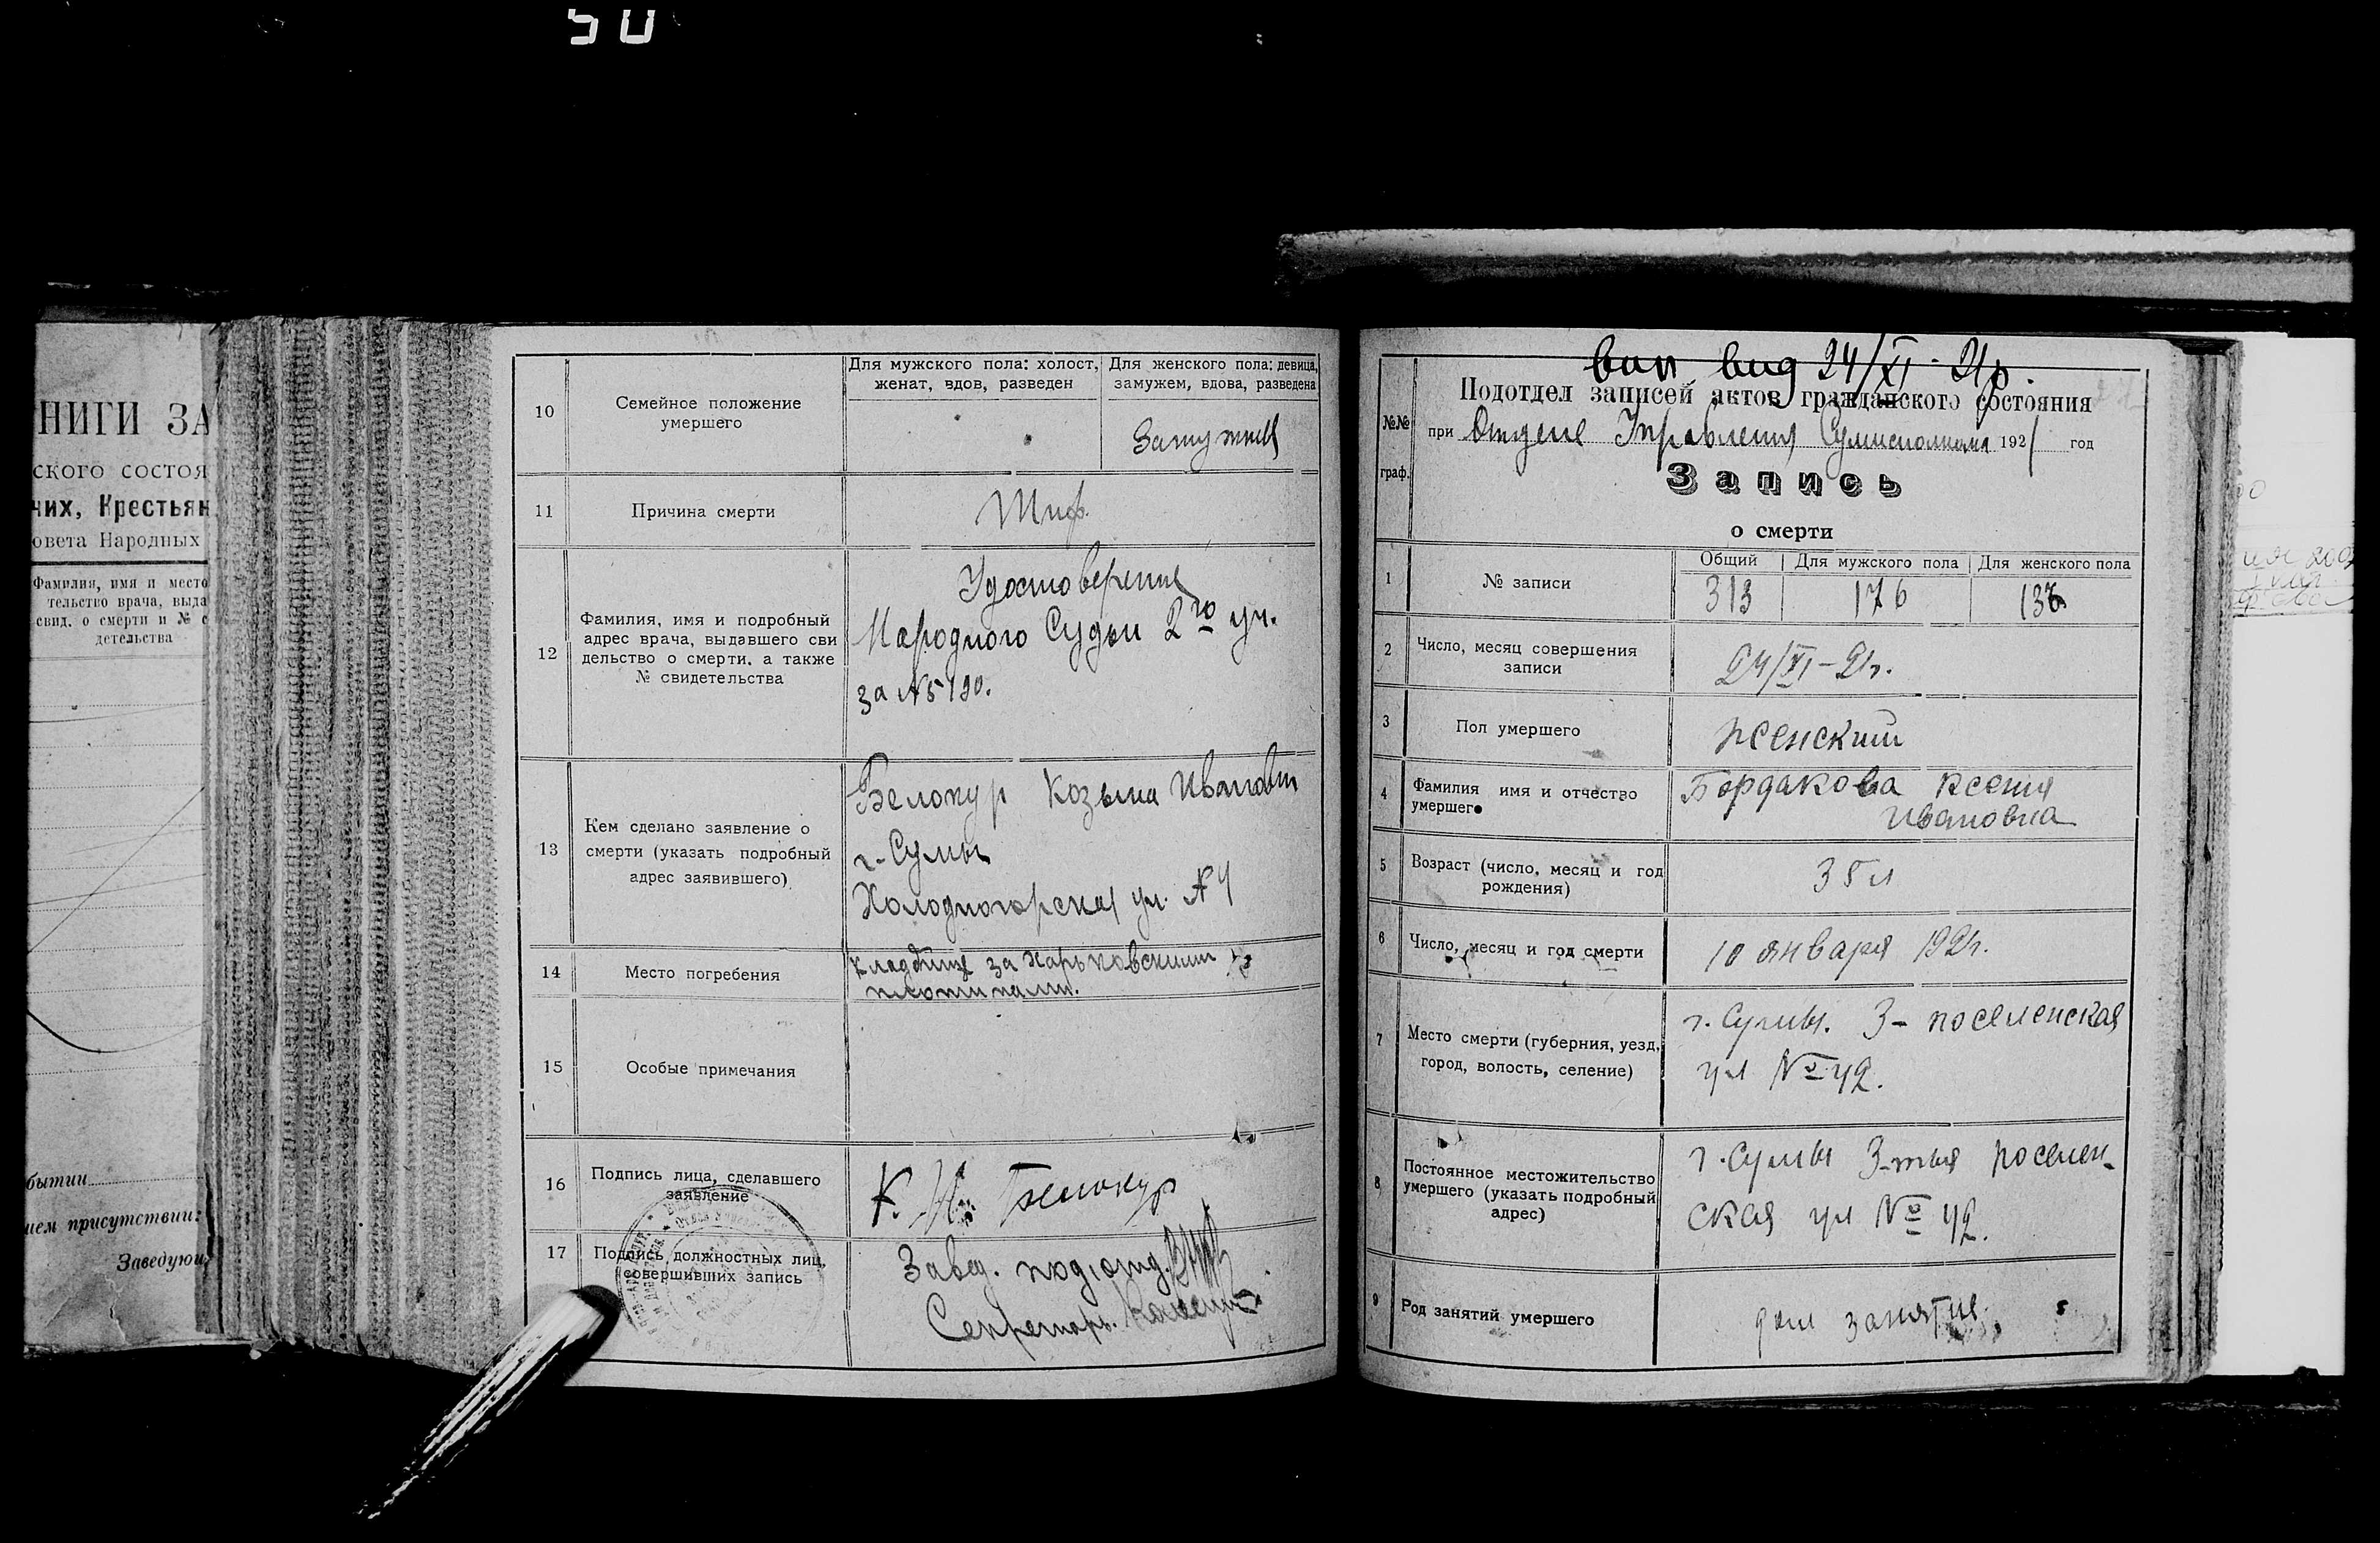 50
НИГИ ЗА
ского состоя
чих, Крестьян
овета Народных
Фамилия, имя и место
тельство врача, выда
свид. о смерти и № с
детельства
бытии
ием присутствии:
Заведую
10
Семейное положение
умершего
Для мужского пола: холост,
женат, вдов, разведен
Для женского пола: девица,
замужем, вдова, разведена
Замужняя
11
Причина смерти
Тиф.
12
Фамилия, имя и подробный
адрес врача, выдавшего сви
дельство о смерти, а также
№ свидетельства
Удостоверение
Народного Судьи 2го уч.
за №5190.
13
Кем сделано заявление о
смерти (указать подробный
адрес заявившего)
Белокур Козьма Иванович
г. Сумы
Холодногорская ул. № 4
14
Место погребения
кладбище за Харьковскими
15
Особые примечания
16
Подпись лица, сделавшего
заявление
К. И. Белокур
17
Подпись должностных лиц,
совершивших запись
Завед. подотд.
Секретарь.
24/XI - 21р.
№№
граф.
Подотдел записей актов гражданского состояния
при Отделе Управления Сумисполкома 1921 год
Запись
о смерти
1
№ записи
Общий
Для мужского пола
Для женского пола
313
176
137
2
Число, месяц совершения
записи
24/XI-21г.
3
Пол умершего
женский
4
Фамилия имя и отчество
умершего
Бордакова Ксения
Ивановна
5
Возраст (число, месяц и год
рождения)
35 л
6
Число, месяц и год смерти
10 января 1921г.
7
Место смерти (губерния, уезд,
город, волость, селение)
г. Сумы. 3- поселенская
ул № 42.
8
Постоянное местожительство
умершего (указать подробный
адрес)
г. Сумы 3-тья поселен-
ская ул № 42.
9
Род занятий умершего
дом занятие